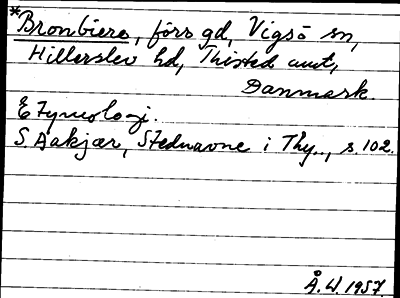 *Bronbierg, förs gd, Vigsö sn,
Hillerslev hd, Thisted amt,
Danmark.
Etymologi.
S. Aakjær, Stednavne i Thy.., s. 102.
Å. W. 1957